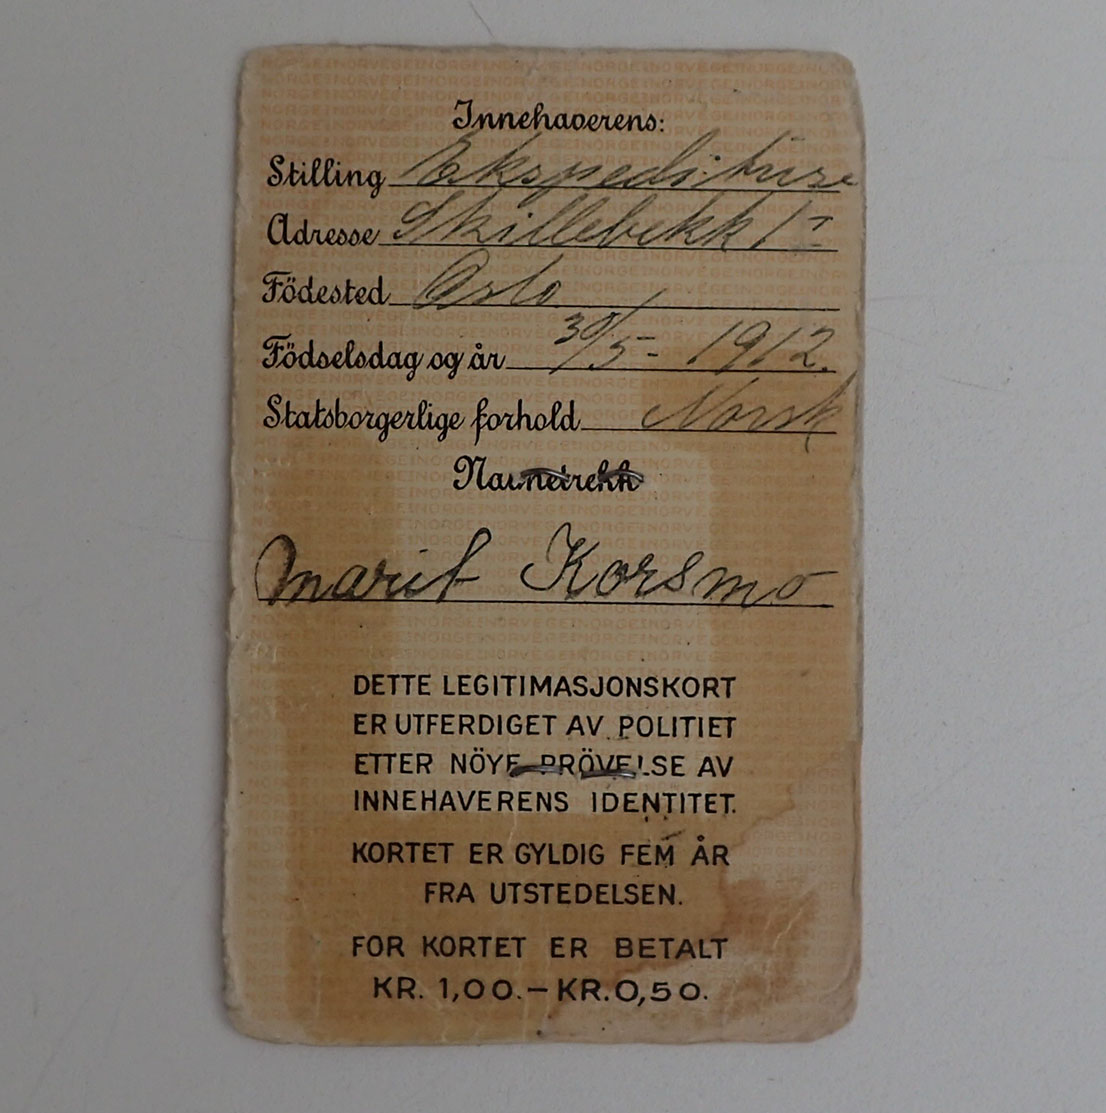 Innehaverens:
Stilling Ekspeditrise
Adresse Skillebekk 1
Födested Oslo
Födselsdag og år 30/5- 1912.
Statsborgerlige forhold Norsk
Navnetrekk
Marit Korsmo
DETTE LEGITIMASJONSKORT
ER UTFERDIGET AV POLITIET
ETTER NÖYE PRÖVELSE AV
INNEHAVERENS IDENTITET.
KORTET ER GYLDIG FEM ÅR
FRA UTSTEDELSEN.
FOR KORTET ER BETALT
KR. 1,00.– KR. 0,50.